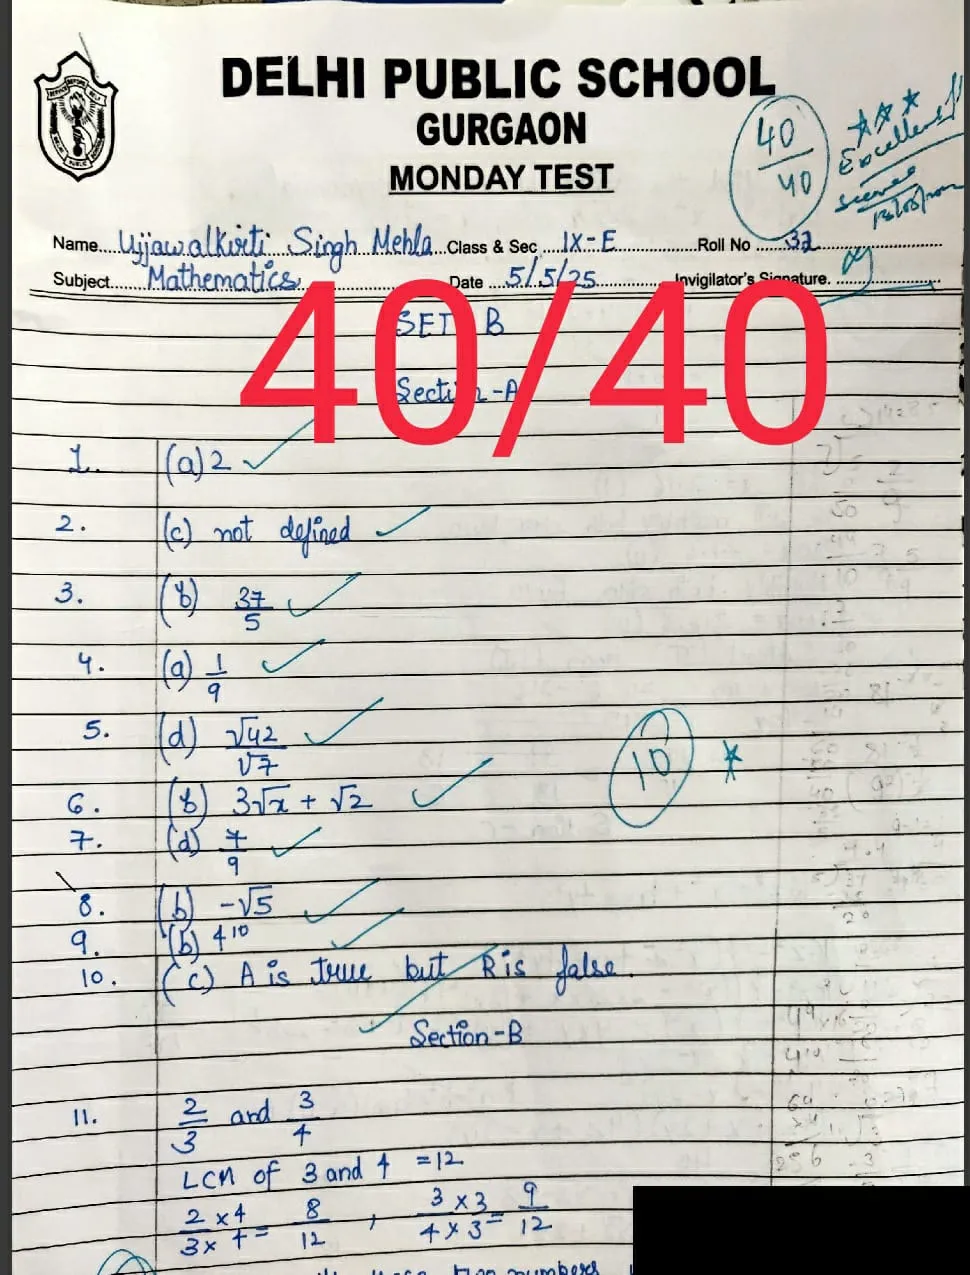 DELHI PUBLIC SCHOOL
GURGAON
MONDAY TEST
40/40
Excellent!!
Name....Ujjawalkirti Singh Mehla...Class & Sec ....IX-E............Roll No .....32
Subject......Mathematics Date ....5/5/25...............Invigilator's Signature.
SET B
40/40
Section-A
1. (a) 2
2. (c) not defined
3. (b) 37/5
4. (a) 1/9
5. (d) √42/√7
10
6. (b) 3√x + √2
7. (d) 7/9
8. (b) -√5
9. (b) 4¹⁰
10. (c) A is true but R is false.
Section-B
11. 2/3 and 3/4
LCM of 3 and 4 = 12
2 x 4/3 x 4 = 8/12 , 3 x 3/4 x 3 = 9/12
two numbers